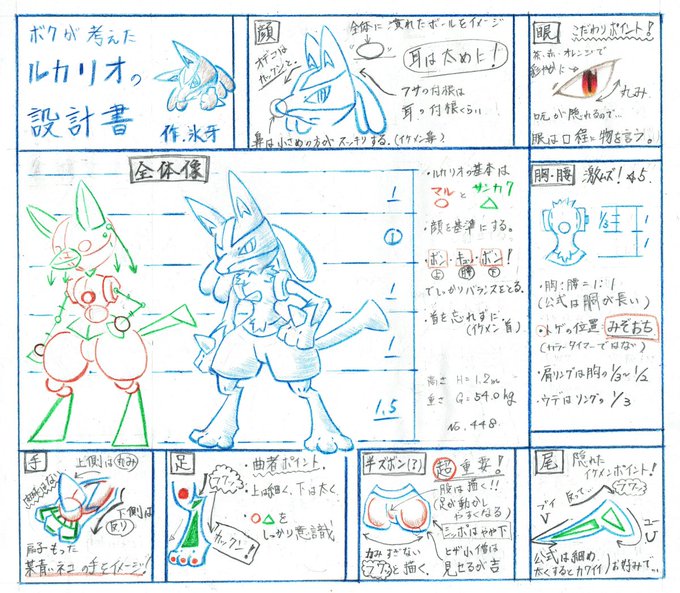 ボクが考えた
ルカリオの
設計書
作.氷牙
顔
全体に潰れたボールをイメージ
オデコは
カックンと、
耳は太めに!
フサの付根は
耳の付根くらい
鼻は小さめの方がスッキリする。(イケメン鼻)
眼
こだわりポイント!
茶・赤・オレンジで
丸み
口元が隠れるので…
眼は口程に物を言う。
全体像
1
①
1
1
1.5
・ルカリオの基本は
マルとサンカク
○ △
・顔を基準にする。
・ボン・キュッ・ボン!
上 腰 下
でしっかりバランスをとる。
・首を忘れずに
(イケメン首)
高さ H=1.2m
重さ G=54.0kg
No.448
胸・腰
激ムズ!
1/3
1
1
・胸:腰=1:1
(公式は胴が長い)
・トゲの位置:みぞおち
(カラータイマーではない)
・肩リングは胸の1/3~1/2
・ウデはリングの1/3
手
上側は丸み
下側は
反り
扇子もった
某青いネコの手をイメージ!
足
・曲者ポイント。
・上は細く、下は太く
・○△を
しっかり意識
カックン!
半ズボン(?)
超重要!
・股は描く!!
(足が動かし
やすくなる)
ヒップはやや下
力みすぎない
と描く。
ヒザ小僧は
見せるが吉
尾
隠れた
イケメンポイント!
反って。
公式は細め
太くするとカワイイ
お好みで…